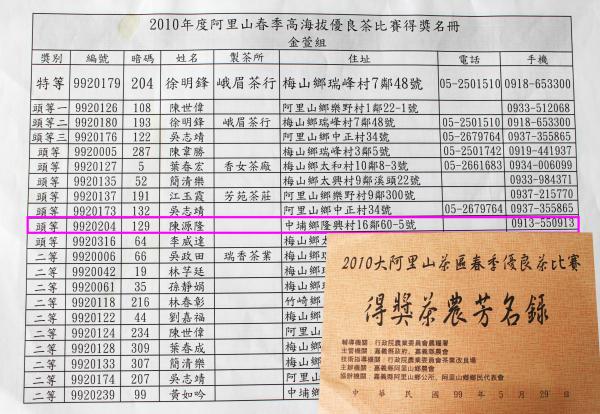 2010年度阿里山春季高海拔優良茶比賽得獎名冊
金萱組
獎別 編號 暗碼 姓名 製茶所 住址 電話 手機
特等 9920179 204 徐明鋒 峨眉茶行 梅山鄉瑞峰村7鄰48號 05-2501510 0918-653300
頭等一 9920126 108 陳世偉 阿里山鄉樂野村1鄰22-1號 0933-512068
頭等二 9920180 193 徐明鋒 峨眉茶行 梅山鄉瑞峰村7鄰48號 05-2501510 0918-653300
頭等三 9920176 122 吳志靖 阿里山鄉中正村34號 05-2679764 0937-355865
頭等 9920005 287 陳韋勝 梅山鄉瑞峰村3鄰5號 05-2501742 0919-441937
頭等 9920127 5 葉春宏 香女茶廠 梅山鄉太和村10鄰8-3號 05-2661683 0934-006099
頭等 9920135 52 簡清樂 梅山鄉太興村9鄰溪頭22號 0933-984371
頭等 9920137 191 江玉霞 芳苑茶莊 阿里山鄉樂野村9鄰300號 0937-215770
頭等 9920173 132 吳志靖 阿里山鄉中正村34號 05-2679764 0937-355865
頭等 9920204 129 陳源隆 中埔鄉隆興村16鄰60-5號 0913-550913
頭等 9920316 64 李威達 梅山鄉太
二等 9920006 66 吳政田 瑞香茶業 梅山鄉
二等 9920042 19 林芓莛 梅山鄉
二等 9920061 35 孫靜娟 梅山鄉
二等 9920118 216 林春彰 竹崎鄉
二等 9920122 44 劉嘉福 梅山鄉
二等 9920124 234 陳世偉 阿里山
二等 9920128 309 葉春成 梅山鄉
二等 9920133 307 簡清樂 梅山鄉
二等 9920174 207 吳志靖 阿里山
二等 9920247 99 黃如吟 中埔鄉
2010大阿里山茶區春季優良茶比賽
得獎茶農芳名錄
輔導機關：行政院農業委員會農糧署
主管機關：嘉義縣政府、嘉義縣農會
技術指導機關：行政院農業委員會茶業改良場
主辦機關：嘉義縣阿里山鄉農會
協辦機關：嘉義縣阿里山鄉公所、阿里山鄉鄉民代表會
中華民國99年5月29日